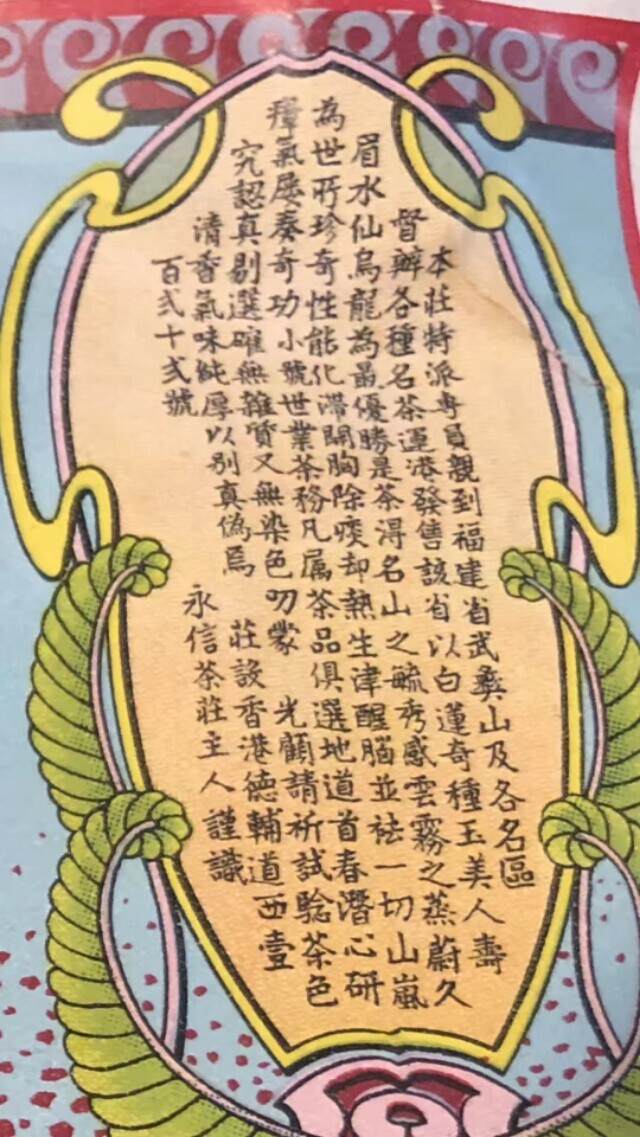 本莊特派專員親到福建省武彝山及各名區
督辦各種名茶運港發售該省以白蓮奇種玉美人壽
眉水仙烏龍為最優勝是茶淂名山之毓秀感雲霧之蒸蔚久
為世所珍奇性能化滯開胸除痰却熱生津醒腦並祛一切山嵐
瘴氣屡奏奇功小號世業茶務凡属茶品俱選地道首春潛心研
究認真剔選確無雜質又無染色叨蒙 光顧請祈試騐茶色
清香氣味純厚以別真偽焉 莊設香港德輔道西壹
百弍十弍號 永信茶莊主人謹識